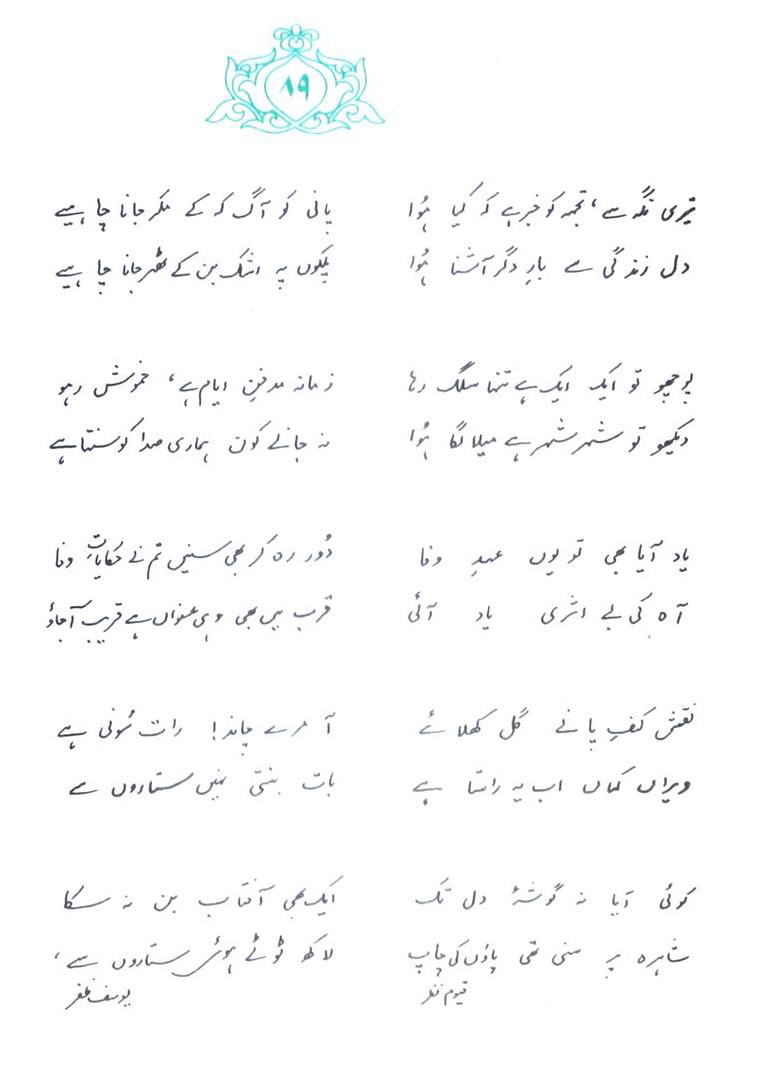 ۸۹
تیری نگہ سے، تجھ کو خبر ہے کہ کیا ہُوا
دل زندگی سے بارِ دگر آشنا ہُوا
پوچھو تو ایک ایک ہے تنہا سلگ رہا
دیکھو تو شہر شہر ہے میلا لگا ہُوا
یاد آیا بھی تو یوں عہدِ وفا
آہ کی بے اثری یاد آئی
نقشِ کفِ پا نے گل کھلائے
ویراں کہاں اب یہ راستا ہے
کوئی آیا نہ گوشۂ دل تک
شاہرہ پر سنی تھی پاؤں کی چاپ
قیوم نظر
پانی کو آگ کہ کے مکر جانا چاہیے
پلکوں پہ اشک بن کے ٹھہر جانا چاہیے
زمانہ مدفنِ ایام ہے، خموش رہو
نہ جانے کون ہماری صدا کو سنتا ہے
دُور رہ کر بھی سنیں تم نے حکایاتِ وفا
قرب میں بھی وہی عنواں ہے قریب آ جاؤ
آ مرے چاند! رات سُونی ہے
بات بنتی نہیں ستاروں سے
ایک بھی آفتاب بن نہ سکا
لاکھ ٹوٹے ہوئے ستاروں سے،
یوسف ظفر